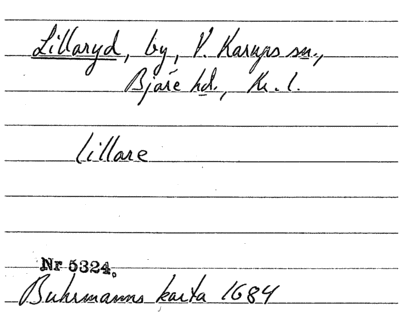 Lillaryd, by, V. Karups sn.,
Bjäre hd., Kr. l.
Lillare
Nr 5324.
Buhrmanns karta 1684